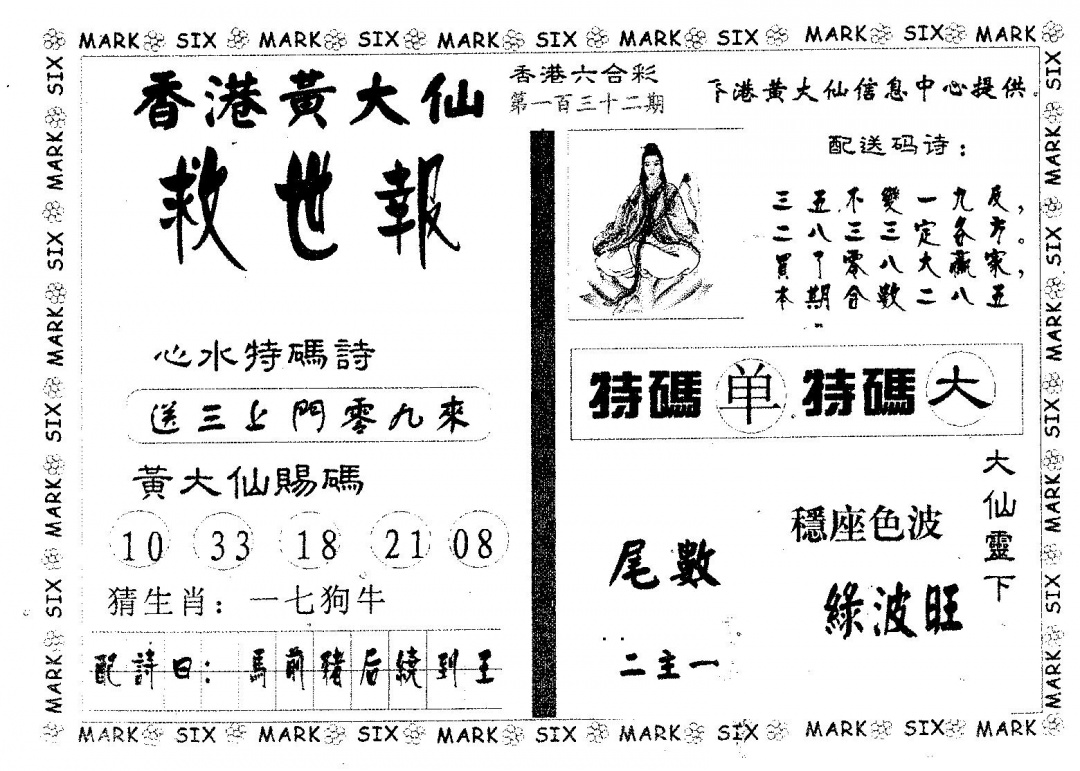 MARK SIX MARK SIX MARK SIX MARK SIX MARK SIX MARK
香港黃大仙
救世報
心水特碼詩
送三上門零九來
黃大仙賜碼
10 33 18 21 08
猜生肖：一七狗牛
配詩曰：馬前豬后繞到王
香港六合彩
第一百三十二期
下港黄大仙信息中心提供。
配送码诗：
三五不變一九反，
二八三三定各方。
買了零八大贏家，
本期合數二八五
特碼单特碼大
大仙靈下
穩座色波
綠波旺
尾數
二主一
MARK SIX MARK SIX MARK SIX MARK SIX MARK SIX MARK
MARK SIX MARK SIX MARK SIX MARK SIX
MARK SIX MARK SIX MARK SIX MARK SIX